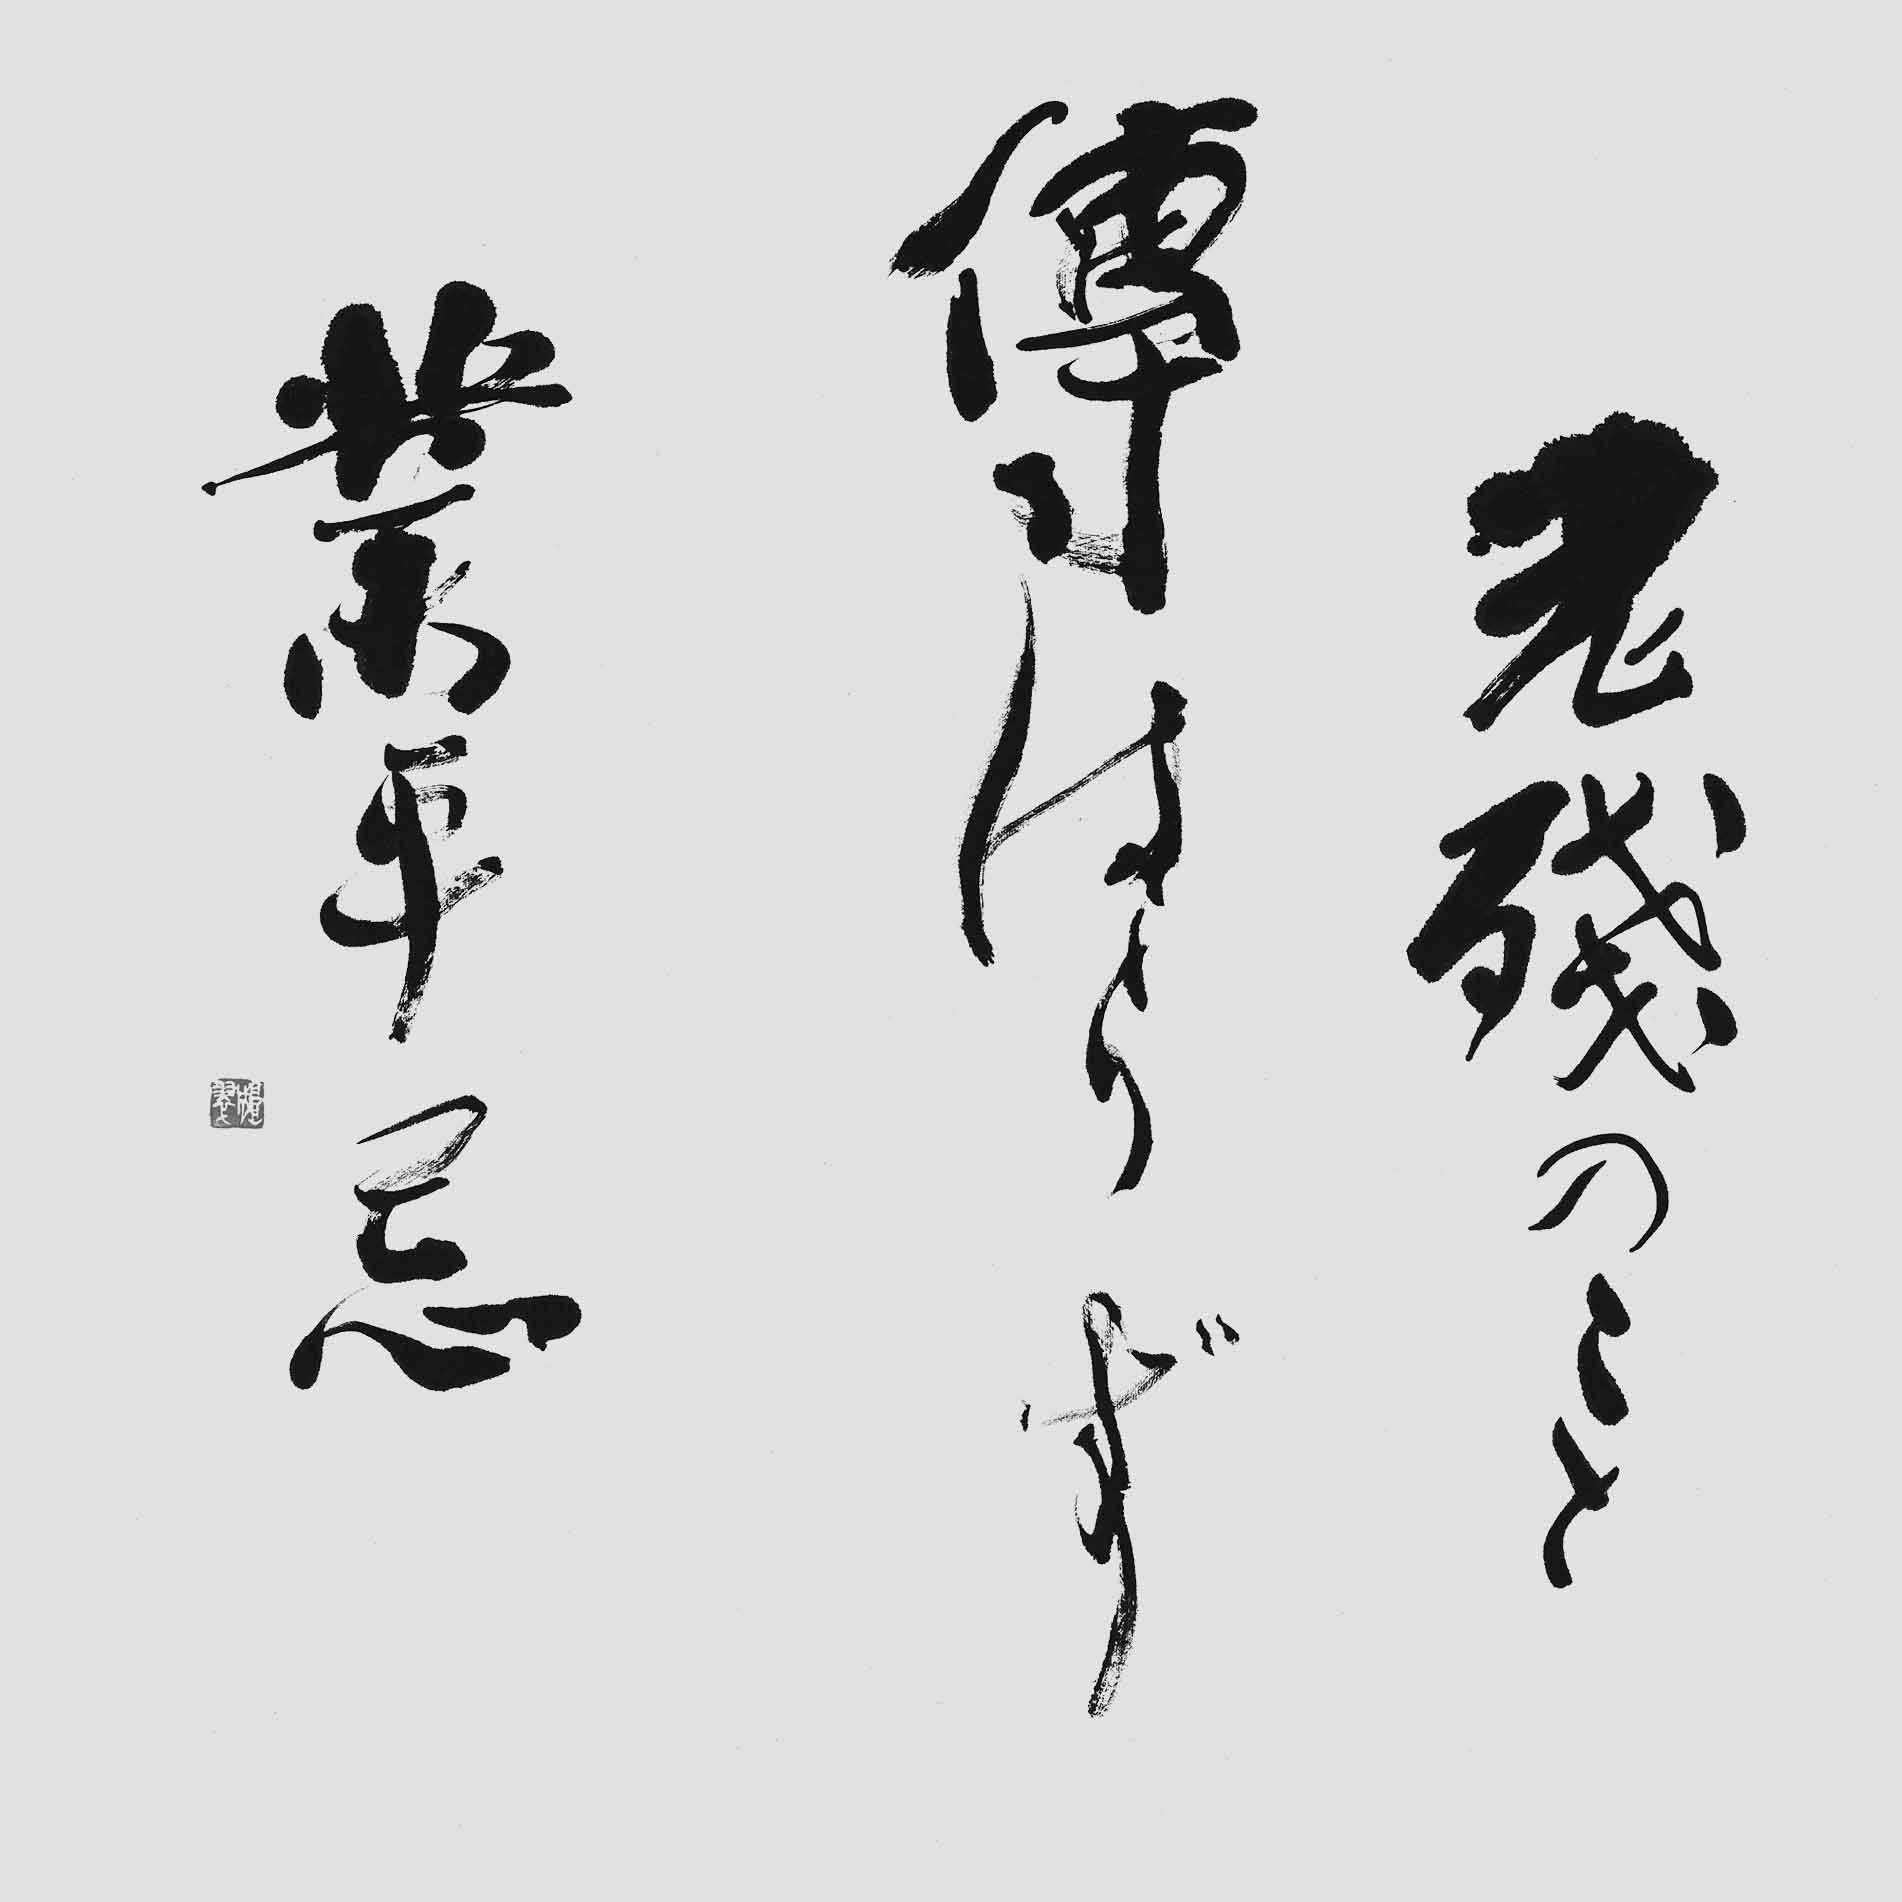 老残のこと
傳はらず
業平忌